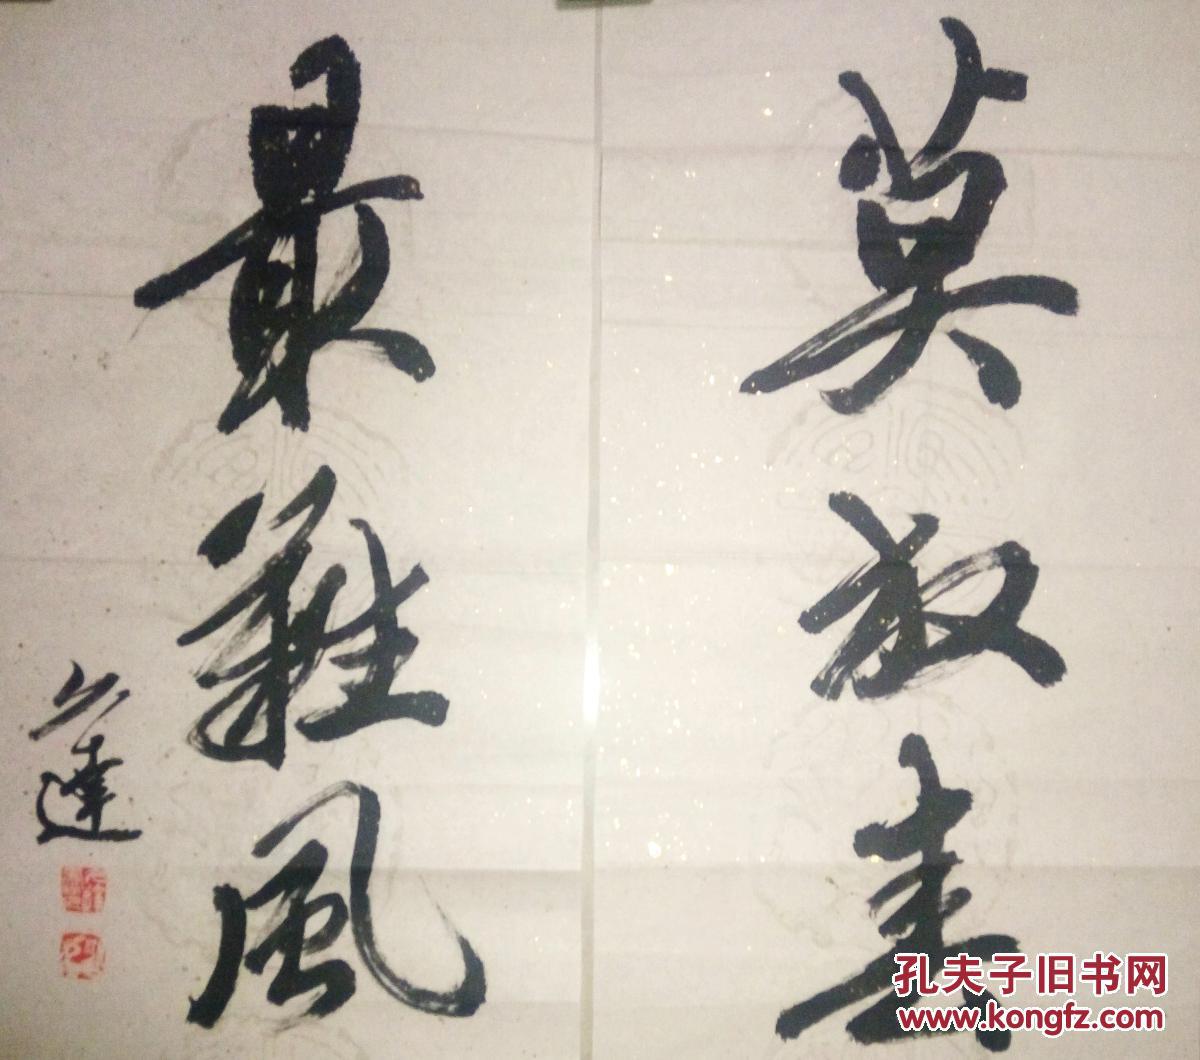 莫放春
最難風
達
孔夫子旧书网
www.kongfz.com